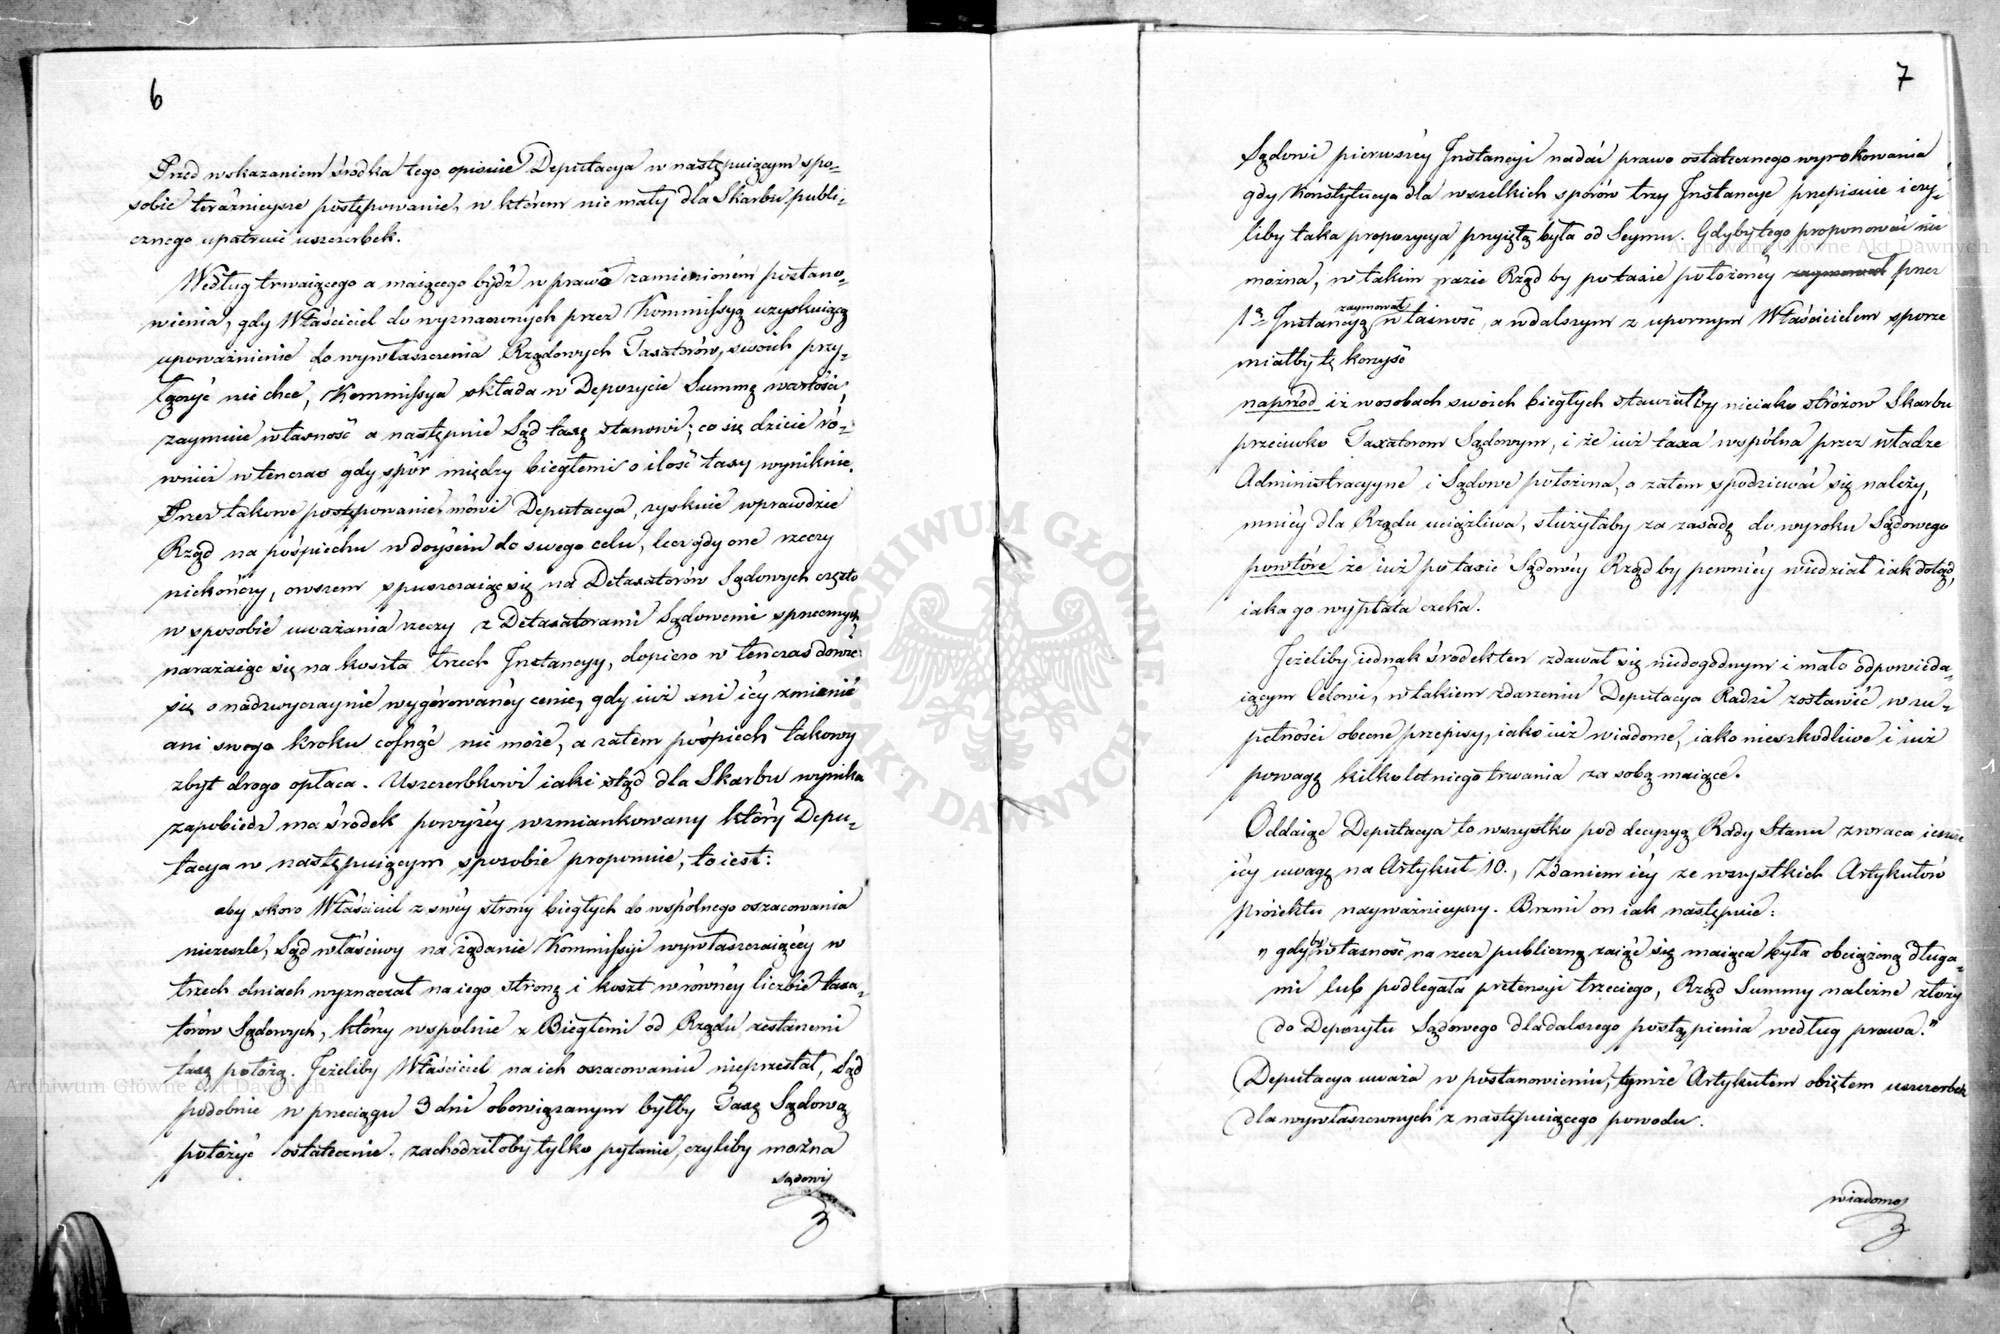 6
Przed wskazaniem środka tego opisuie Deputacya w następuiącym spo-
sobie teraźnieysze postępowanie, w którém nie mały dla Skarbu publi-
cznego upatruie uszczerbek.
Według trwaiącego a maiącego bydź w prawo zamienioném postano-
wienia, gdy Właściciel do wyznaczonych przez Kommissyą uzyskuiącą
upoważnienie do wywłaszczenia Rządowych Taxatorów, swoich przy-
łączyć nie chce, Kommissya składa w Depozycie Summę wartości,
zaymuie własność a następnie Sąd taxę stanowi; co się dzieie ró-
wnież wtenczas gdy spór między biegłemi o ilość taxy wyniknie.
Przez takowe postępowanie, mówi Deputacya, zyskuie wprawdzie
Rząd na pośpiechu w doyściu do swego celu, lecz gdy one rzeczy
niekończy, owszem spuszczaiąc się na Detaxatorów Sądowych często
w sposobie uważania rzeczy z Detaxatorami Sądowemi sprzecznych,
narażaiąc się na koszta trzech Instancyy, dopiero w tenczas dowie
się o nadzwyczaynie wygórowanéy cenie, gdy iuż ani iéy zmienić
ani swego kroku cofnąć nie może, a zatem pośpiech takowy
zbyt drogo opłaca. Uszczerbkowi iaki stąd dla Skarbu wynika
zapobiedz ma środek powyżéy wzmiankowany który Depu-
tacya w następuiącym sposobie proponuie, to iest:
aby skoro Właściciel z swéy strony biegłych do wspólnego oszacowania
niezeszle, Sąd właściwy na żądanie Kommissyi wywłaszczaiącéy w
trzech dniach wyznaczał na iego stronę i koszt w równéy liczbie taxa-
torów Sądowych, który wspólnie z Biegłemi od Rządu zesłanemi
taxę położą. Jeżeliby Właściciel na ich oszacowaniu nieprzestał, Sąd
podobnie w przeciągu 3 dni obowiązanym byłby Taxę Sądową
położyć ostatecznie. zachodziłoby tylko pytanie, czyliby można
sądowi
7
Sądowi pierwszéy Instancyi nadać prawo ostatecznego wyrokowania
gdy Konstytucya dla wszelkich sporów trzy Instancye przepisuie i czy-
liby taka propozycya przyiętą była od Seymu. Gdyby tego proponować nie
można, w takim razie Rząd by po taxie położonéy przez
zaymował
1ą Instancyą własność, a w dalszym z upornym Właścicielem sporze
miałby tę korzyść
naprzód iż w osobach swoich biegłych stawiałby nieiako stróżów Skarbu
przeciwko Taxatorom Sądowym, i że iuż taxa wspólna przez władze
Administracyyne i Sądowe położona, a zatem spodziewać się należy,
mniéy dla Rządu uciążliwa, służyłaby za zasadę do wyroku Sądowego
powtóre że iuż po taxie Sądowéy Rząd by pewniéy wiedział iak dotąd,
iaka go wypłata czeka.
Jeżeliby iednak środek ten zdawał się niedogodnym i mało odpowieda-
iącym Celowi, w takiem zdarzeniu Deputacya Radzi zostawić w zu-
pełności obecne przepisy, iako iuż wiadome, iako nieszkodliwe i iuż
powagę kilkoletniego trwania za sobą maiące.
Oddaiąc Deputacya to wszystko pod decyzyą Rady Stanu zwraca ieszcze
iéy uwagę na Artykuł 10., Zdaniem iéy ze wszystkich Artykułów
Proiektu nayważnieyszy. Brzmi on iak następuie:
„ gdyby własność na rzecz publiczną zaiąć się maiąca była obciążoną długa-
mi lub podlegała pretensyi trzeciego, Rząd Summy należne złoży
do Depozytu Sądowego dla dalszego postąpienia według prawa."
Deputacya uważa w postanowieniu, tymże Artykułem obiętem uszczerbek
dla wywłaszczonych z następuiącego powodu.
wiadomo